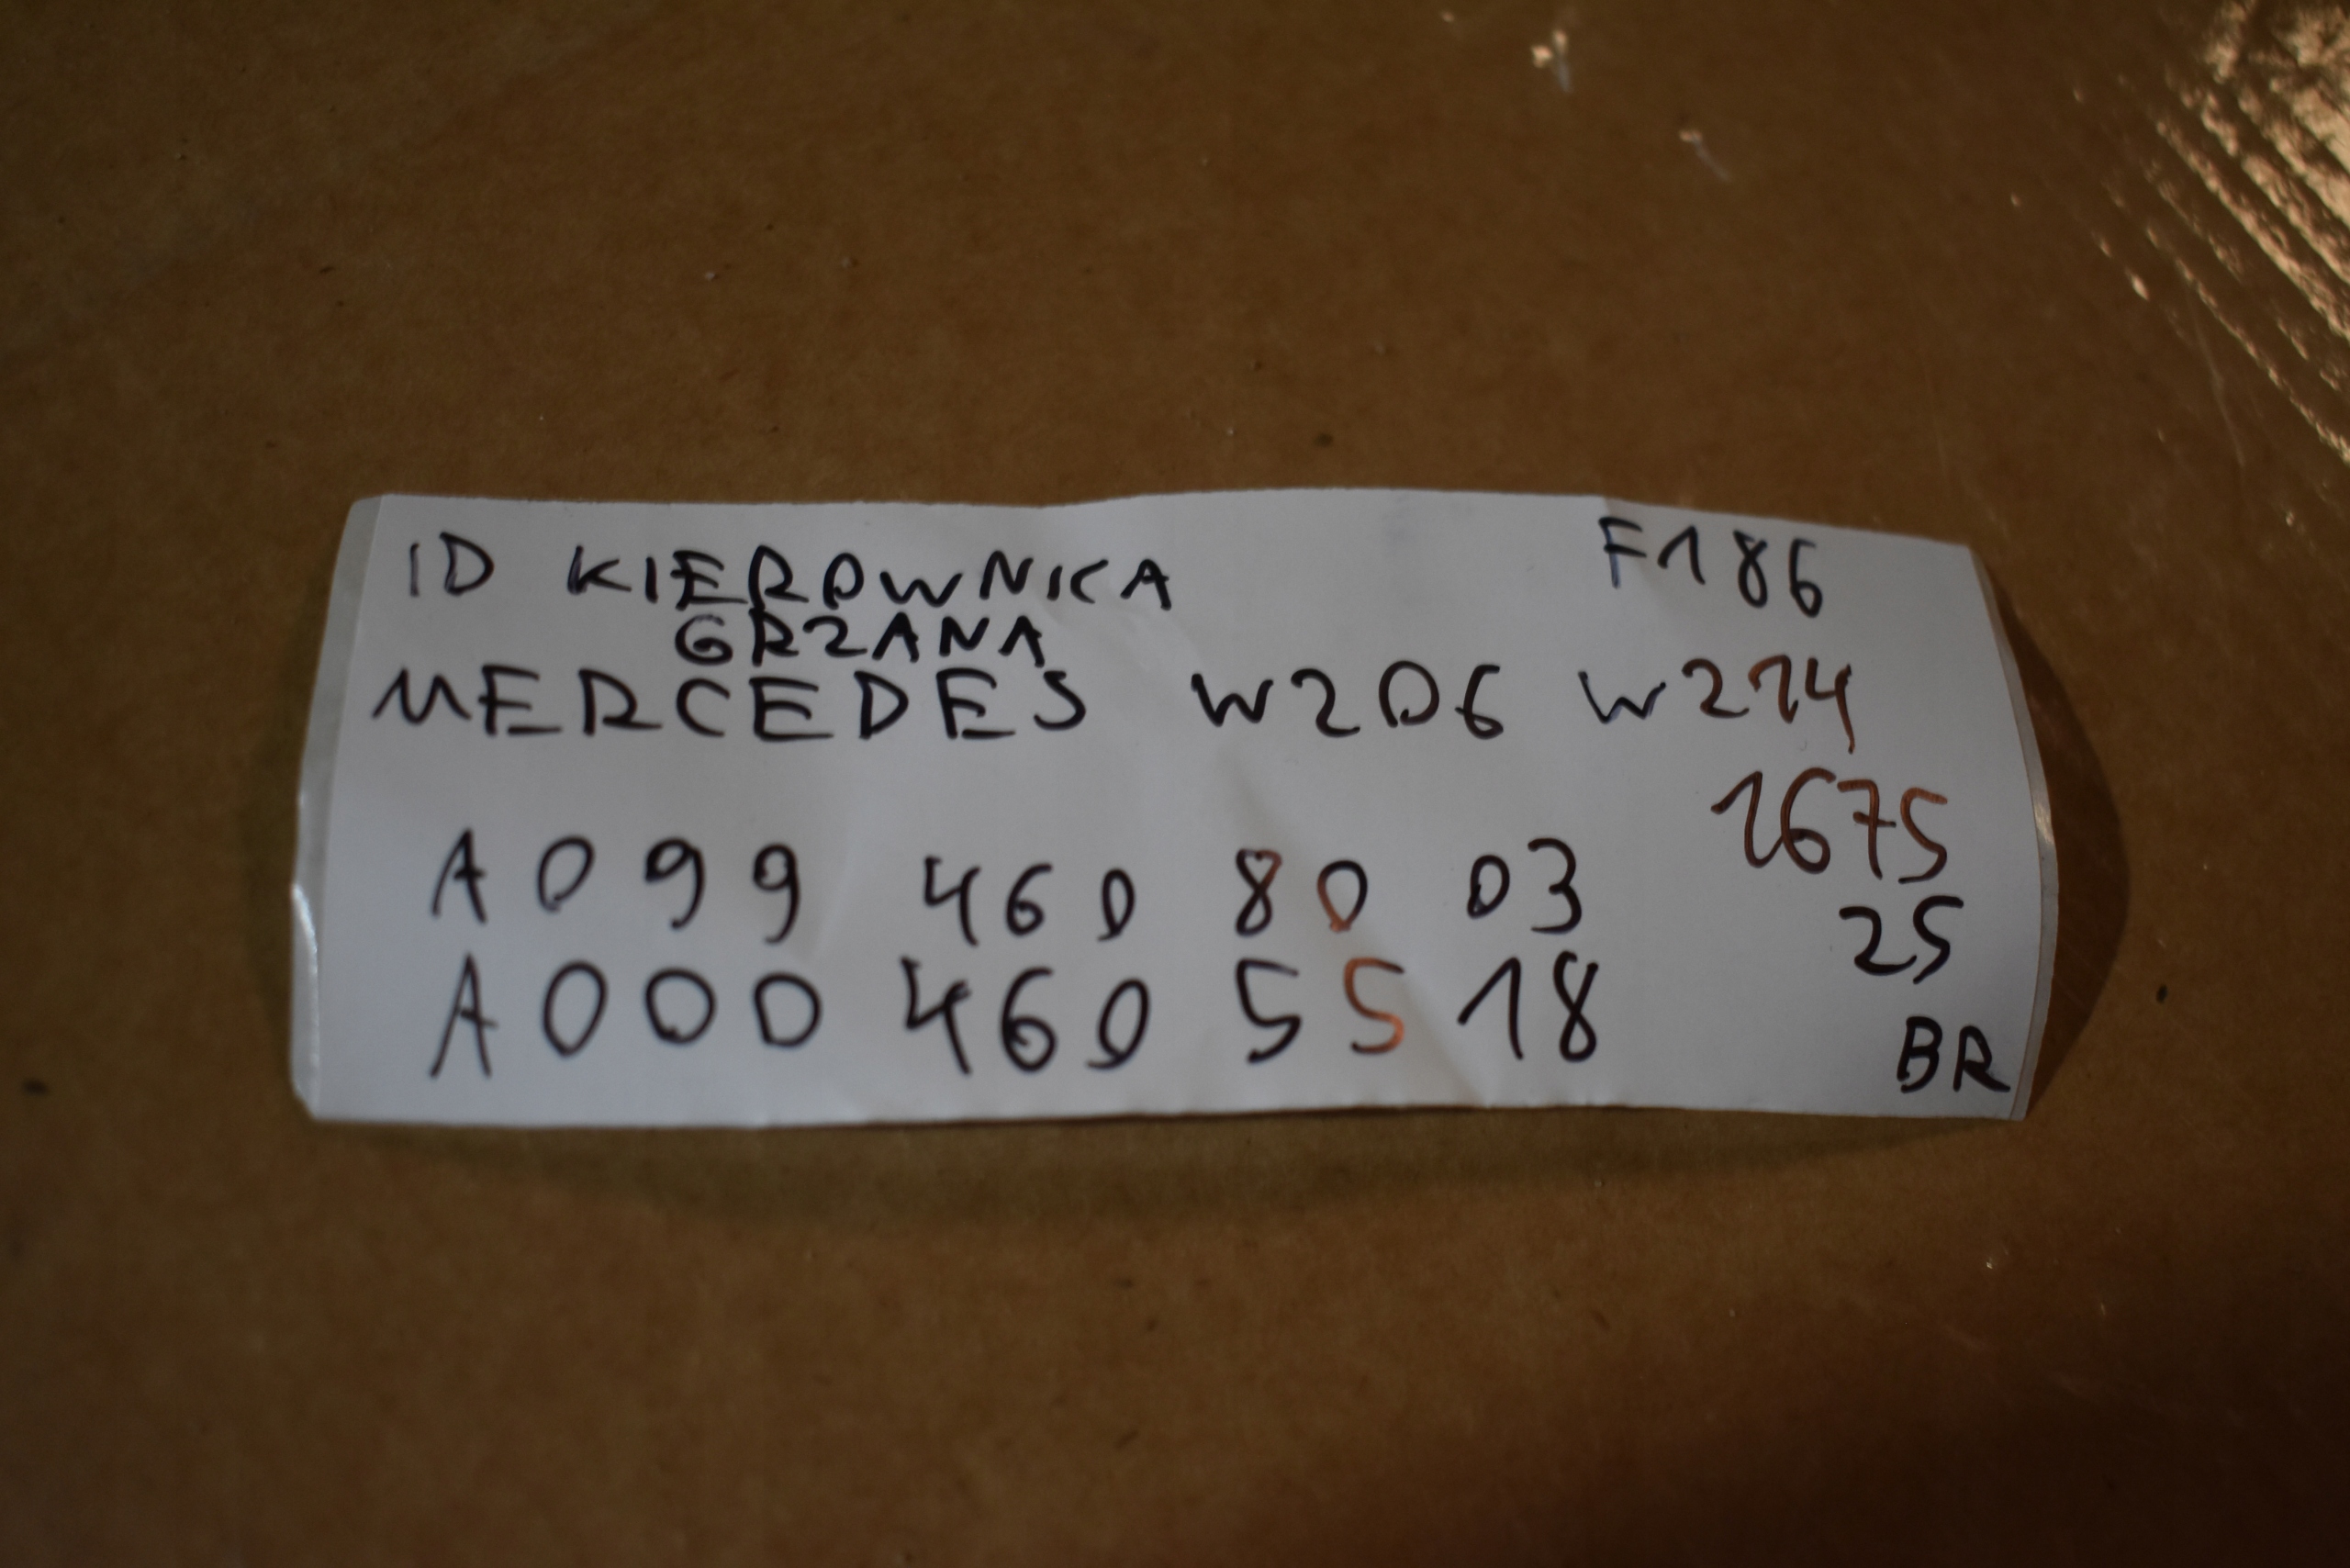 ID KIEROWNICA F186
GRZANA
MERCEDES W206 W214
1675
A099 460 80 03
25
A000 460 55 18
BR